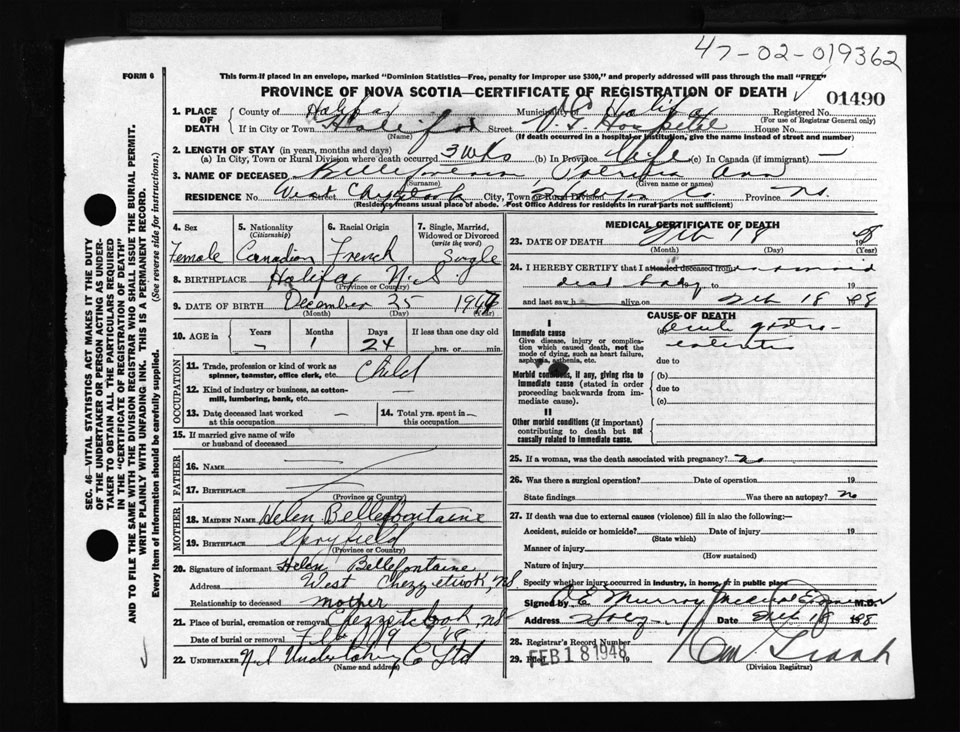 47-02-019362
FORM 6
This form if placed in an envelope, marked "Dominion Statistics—Free, penalty for improper use $300," and properly addressed will pass through the mail "FREE"
PROVINCE OF NOVA SCOTIA—CERTIFICATE OF REGISTRATION OF DEATH
01490
1. PLACE OF DEATH County of Halifax Municipality Registered No.
(For use of Registrar General only)
If in City or Town Halifax Street House No.
(Name) (If death occurred in a hospital or institution, give name instead of street and number)
2. LENGTH OF STAY (in years, months and days)
(a) In City, Town or Rural Division where death occurred 3 wks (b) In Province Life (c) In Canada (if immigrant) —
3. NAME OF DECEASED Patricia Ann
(Surname) (Given name or names)
RESIDENCE No. West Street City, Town or Rural Division Halifax Co. Province N.S.
(Residence means usual place of abode. Post Office Address for residents in rural parts not sufficient)
4. Sex 5. Nationality (Citizenship) 6. Racial Origin 7. Single, Married, Widowed or Divorced (write the word)
Female Canadian French Single
8. BIRTHPLACE Halifax N.S.
(Province or Country)
9. DATE OF BIRTH December 25 1947
(Month) (Day) (Year)
10. AGE in Years Months Days If less than one day old
— 1 24 hrs. or min.
OCCUPATION
11. Trade, profession or kind of work as spinner, teamster, office clerk, etc. Child
12. Kind of industry or business, as cotton-mill, lumbering, bank, etc.
13. Date deceased last worked at this occupation — 14. Total yrs. spent in this occupation —
15. If married give name of wife or husband of deceased
FATHER
16. Name —
17. Birthplace
(Province or Country)
MOTHER
18. Maiden Name Helen Bellefontaine
19. Birthplace Spryfield
(Province or Country)
20. Signature of informant Helen Bellefontaine
Address West Chezzetcook, NS
Relationship to deceased mother
21. Place of burial, cremation or removal Chezzetcook, NS
Date of burial or removal Feb 19 1948
22. UNDERTAKER N.S. Undertaking Co Ltd
(Name and address)
MEDICAL CERTIFICATE OF DEATH
23. DATE OF DEATH Feb 18
(Month) (Day) (Year)
24. I HEREBY CERTIFY that I attended deceased from
dead baby to
and last saw h alive on Feb 18 1948
CAUSE OF DEATH
I
Immediate cause
Give disease, injury or complication which caused death, not the mode of dying, such as heart failure, asphyxia, asthenia, etc.
due to
Morbid conditions, if any, giving rise to immediate cause (stated in order proceeding backwards from immediate cause).
(b)
due to
(c)
II
Other morbid conditions (if important) contributing to death but not causally related to immediate cause.
25. If a woman, was the death associated with pregnancy? no
26. Was there a surgical operation? Date of operation 19
State findings Was there an autopsy? no
27. If death was due to external causes (violence) fill in also the following:—
Accident, suicide or homicide? Date of injury 19
(State which)
Manner of injury
(How sustained)
Nature of injury
Specify whether injury occurred in industry, in home, or in public place
Signed by Murray Medical Examiner M.D.
Address Date Feb 18 1948
28. Registrar's Record Number
29. Filed FEB 18 1948 19
(Division Registrar)
SEC. 46—VITAL STATISTICS ACT MAKES IT THE DUTY OF THE UNDERTAKER OR PERSON ACTING AS UNDERTAKER TO OBTAIN ALL THE PARTICULARS REQUIRED IN THE "CERTIFICATE OF REGISTRATION OF DEATH" AND TO FILE THE SAME WITH THE DIVISION REGISTRAR WHO SHALL ISSUE THE BURIAL PERMIT.
WRITE PLAINLY WITH UNFADING INK. THIS IS A PERMANENT RECORD.
Every item of information should be carefully supplied. (See reverse side for instructions.)